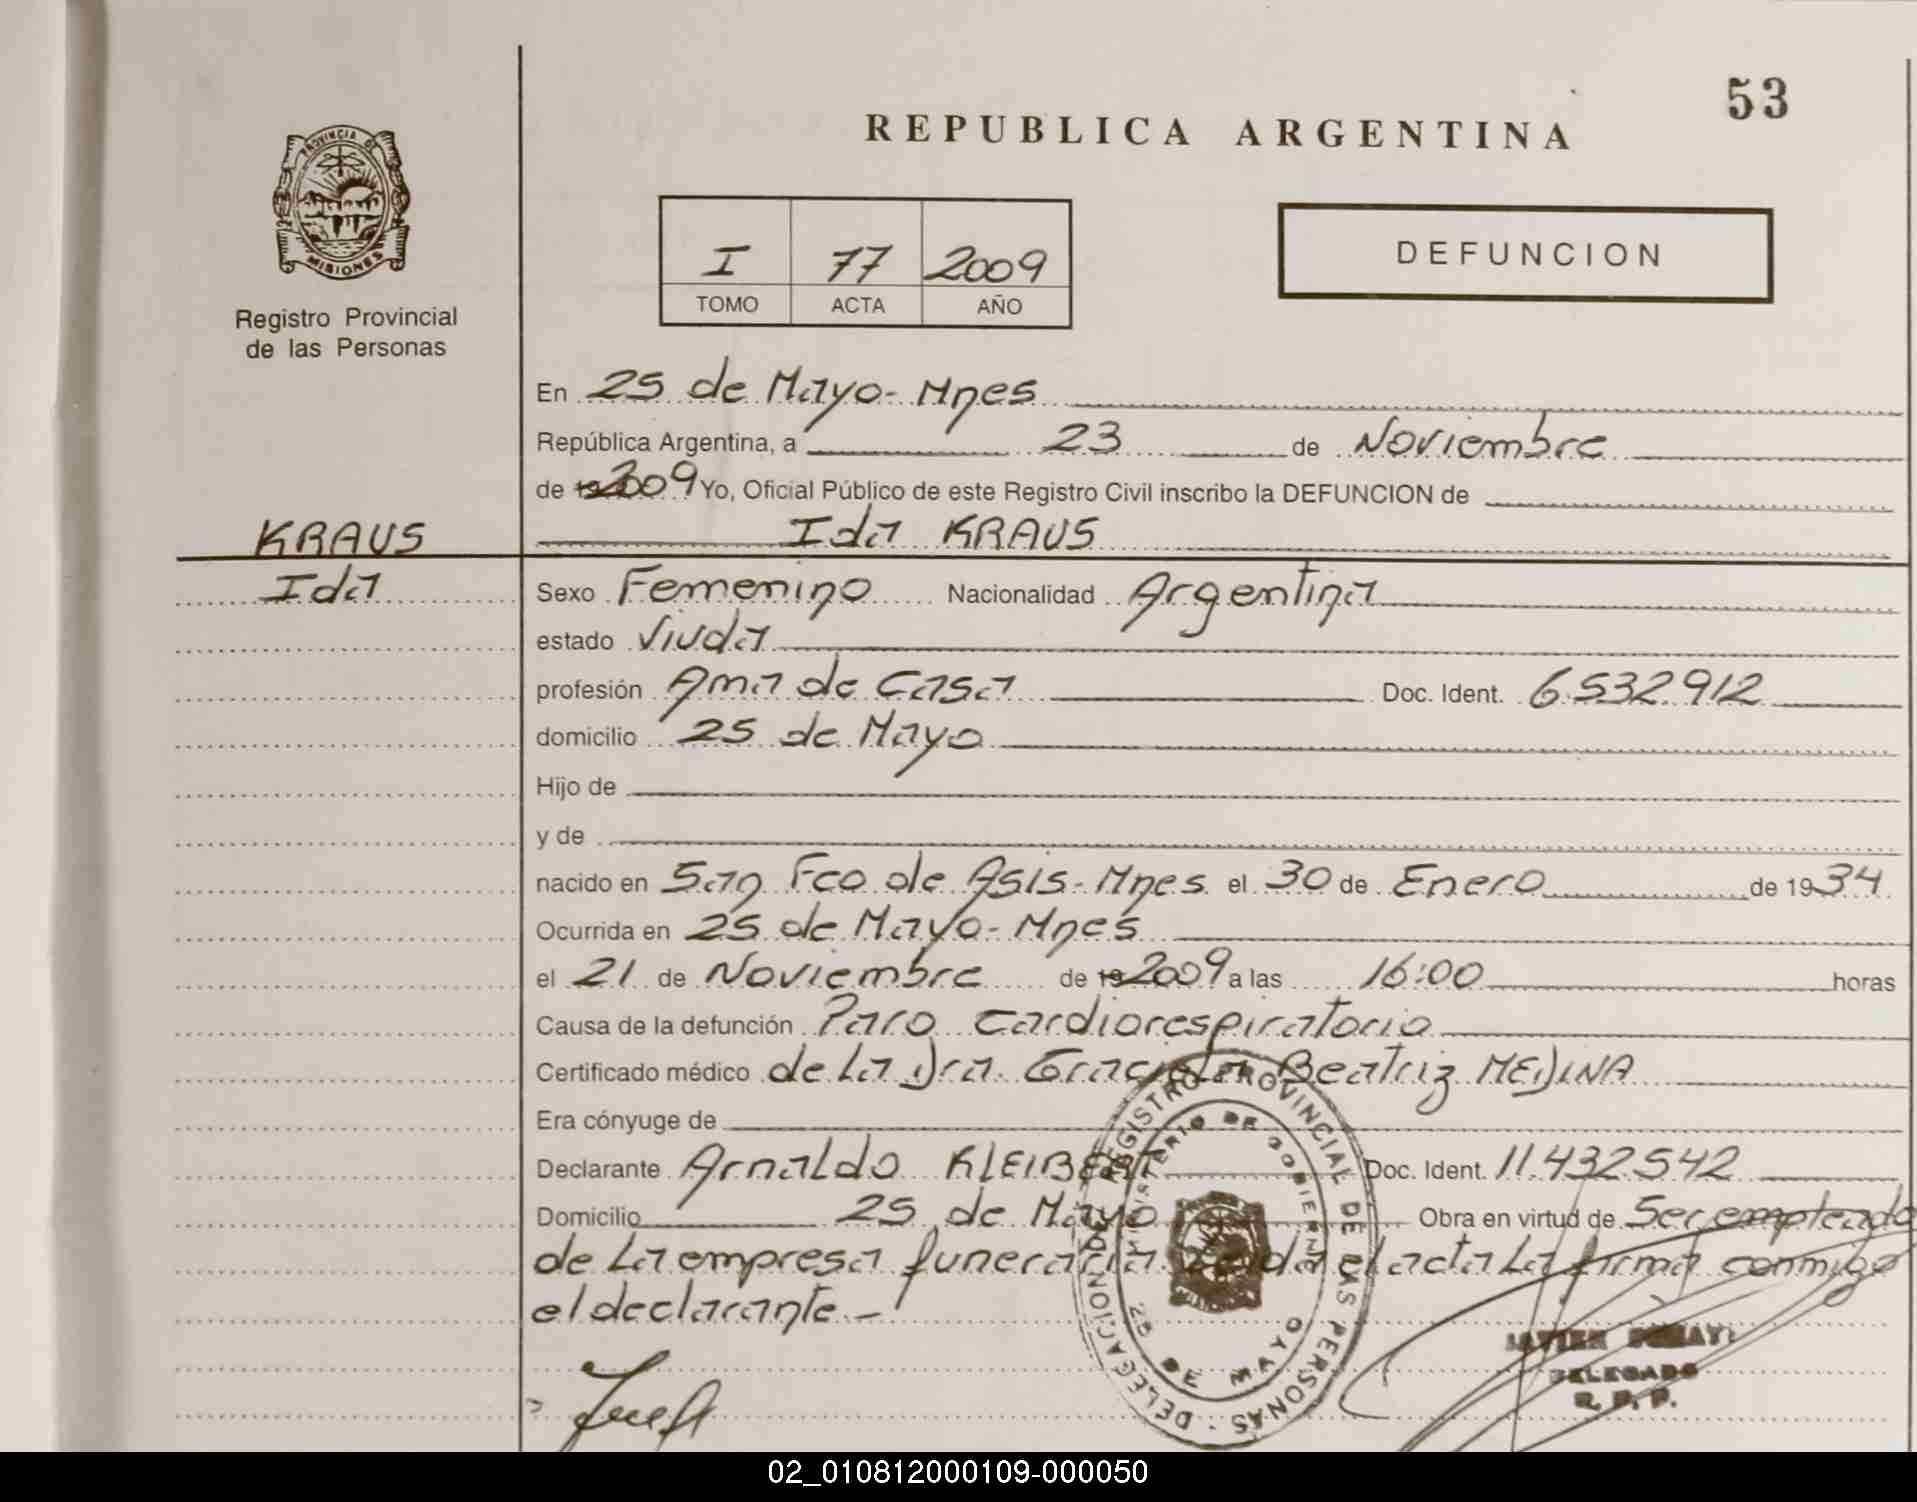 53
REPUBLICA ARGENTINA
PROVINCIA DE
MISIONES
Registro Provincial
de las Personas
I 77 2009
TOMO ACTA AÑO
DEFUNCION
En 25 de Mayo- Mnes
República Argentina, a 23 de Noviembre
de 19 2009 Yo, Oficial Público de este Registro Civil inscribo la DEFUNCION de
KRAUS Ida KRAUS
Ida Sexo Femenino Nacionalidad Argentina
estado Viuda
profesión Ama de Casa Doc. Ident. 6.532.912
domicilio 25 de Mayo
Hijo de
y de
nacido en San Fco de Asis- Mnes el 30 de Enero de 1934
Ocurrida en 25 de Mayo- Mnes
el 21 de Noviembre de 19 2009 a las 16:00 horas
Causa de la defunción Paro Cardiorespiratorio
Certificado médico de La Dra. Graciela Beatriz MEDINA
Era cónyuge de
Declarante Arnaldo KLEIBERT Doc. Ident. 11.432.542
Domicilio 25 de Mayo Obra en virtud de Ser empleado
de La empresa funeraria Leida el acta La firma conmigo
el declarante.-
REGISTRO PROVINCIAL DE LAS PERSONAS - DELEGACION DE
MINISTERIO DE GOBIERNO
25 DE MAYO
JAVIER
DELEGADO
R. P. P.
02_010812000109-000050